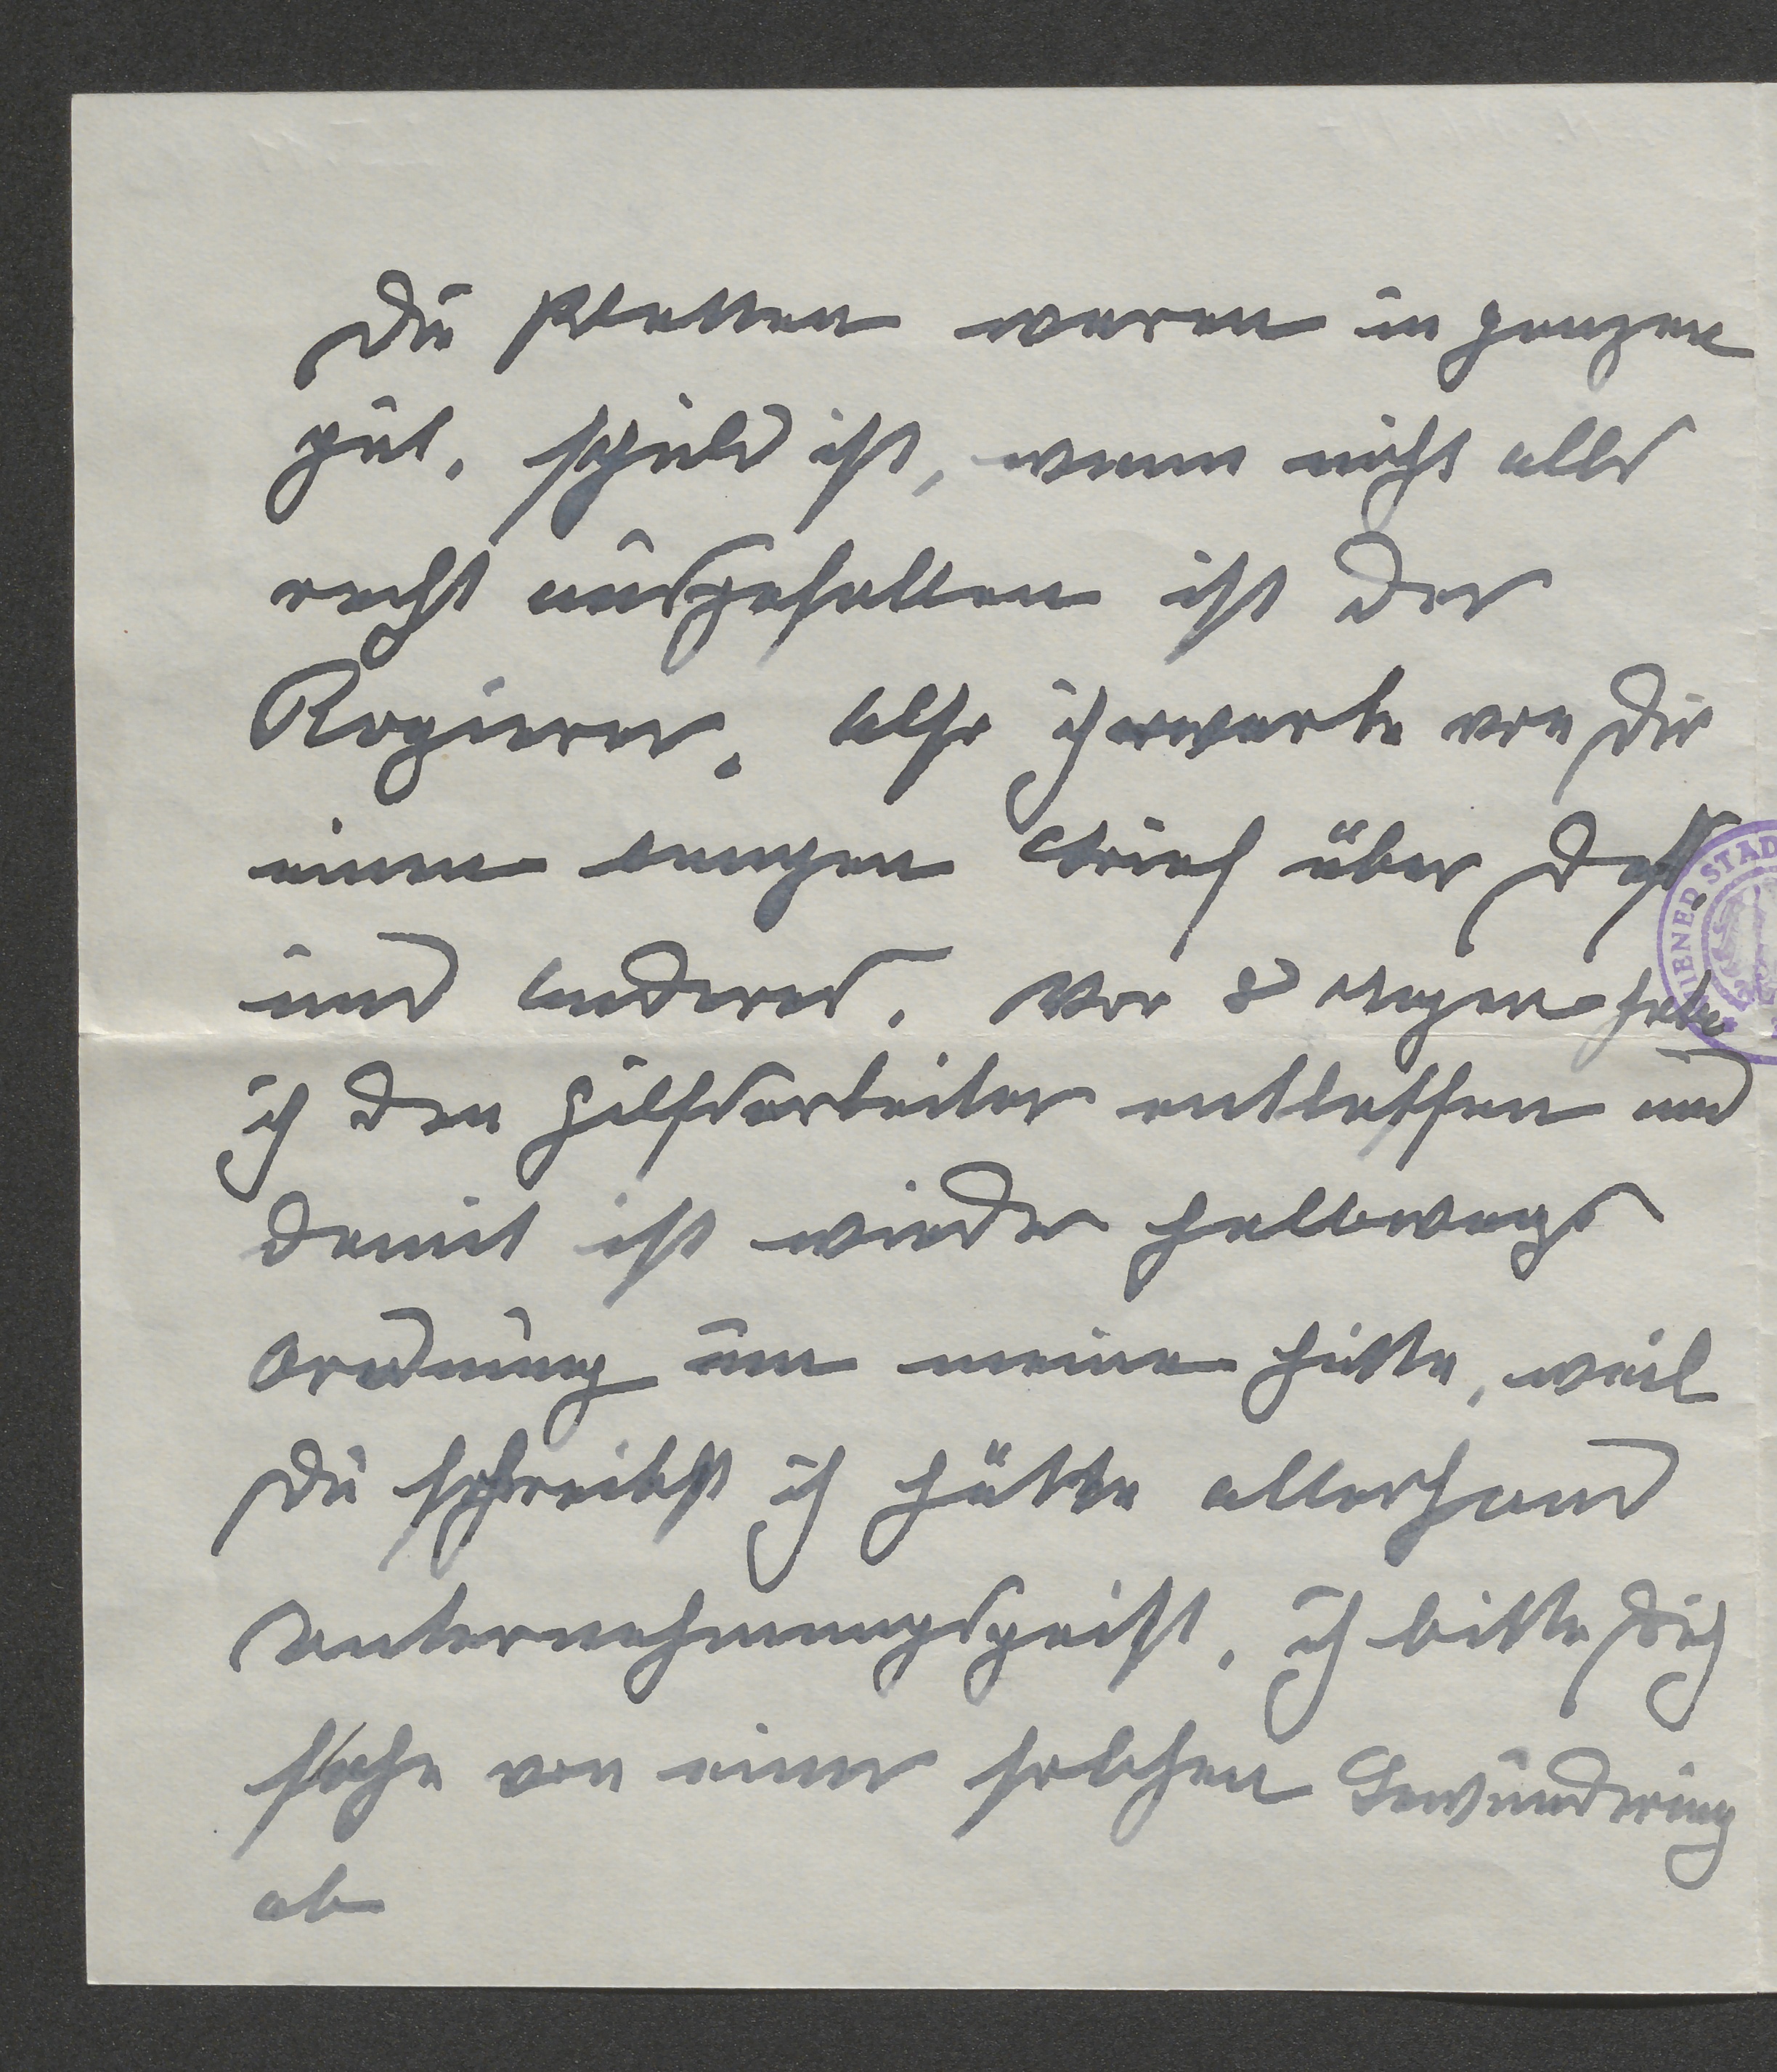 Die Platten waren im ganzen
gut. Schuld ist, wenn nicht alles
recht ausgefallen ist der
Kopierer. Also ich erwarte von Dir
einen langen Brief über dass
und anderes. Vor 8 Tagen habe
ich den Hilfsarbeiter entlassen und
damit ist wieder halbwegs
Ordnung um meine Hütte, weil
Du schreibst ich hätte allerhand
Unternehmungsgeist. Ich bitte Dich
sehe von einer solchen Bewunderung
ab
WIENER STAD